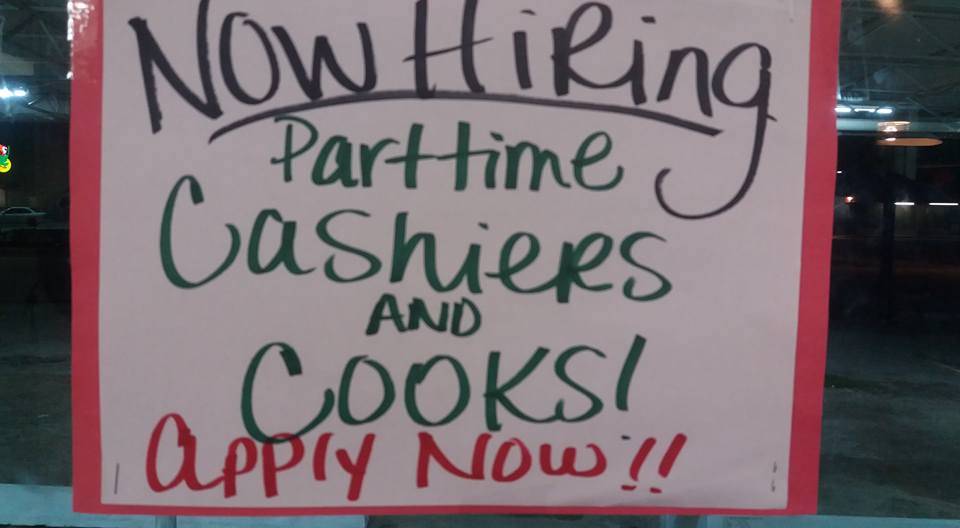 Now Hiring
Parttime
Cashiers
AND
COOKS!
Apply Now!!